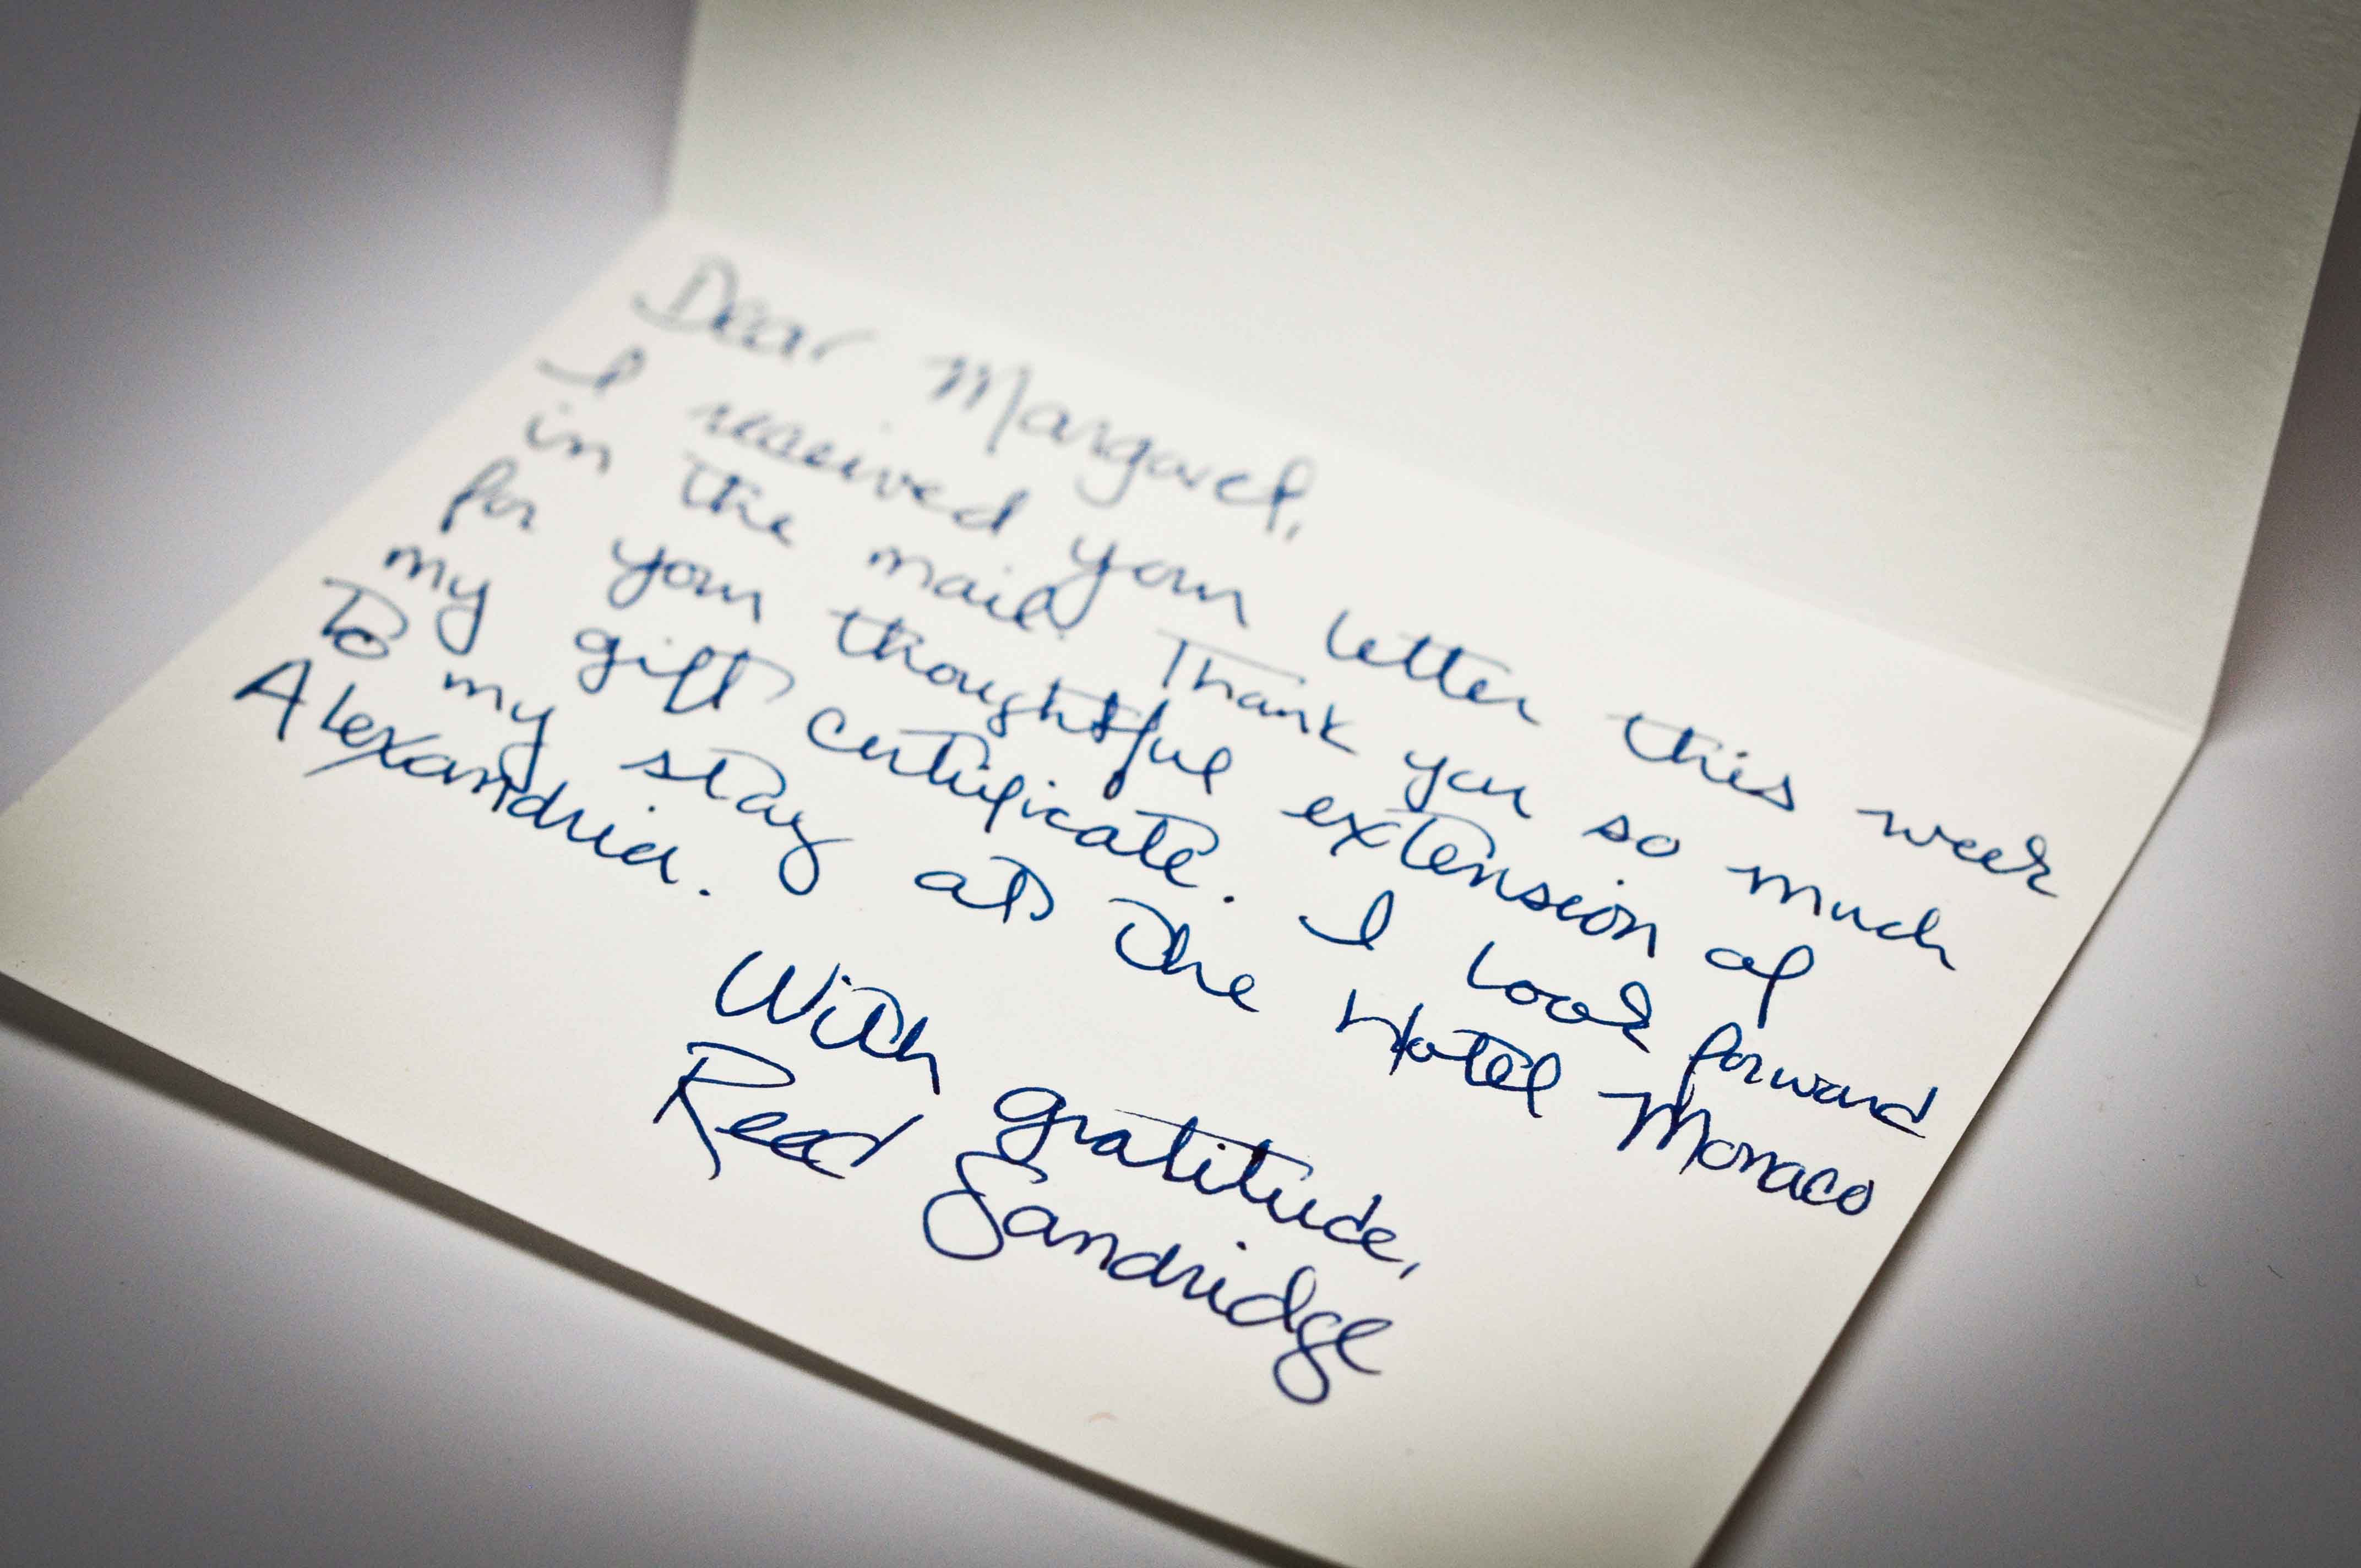 Dear Margaret,
I received your letter this week
in the mail. Thank you so much
for your thoughtful extension of
my gift certificate. I look forward
to my stay at the Hotel Monaco
Alexandria.
With gratitude,
Read Sandridge